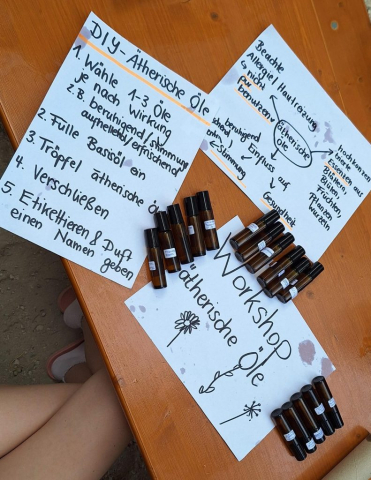 DIY-Ätherische Öle
1. Wähle 1-3 Öle
je nach Wirkung
z.B. beruhigend/stimmung
aufhellend/erfrischend
2. Fülle Basisöl ein
3. Tröpfel ätherische
4. Verschließen
5. Etikettieren & Duft
einen Namen geben
Beachte
Allergie/Hautreizung
nicht
benutzen
ätherische
Öle
beruhigend
Einfluss auf
Stimmung
hochkonzen
Essenzen aus
Blüten,
Früchten,
Pflanzen
wurzeln
Workshop
ätherische Öle